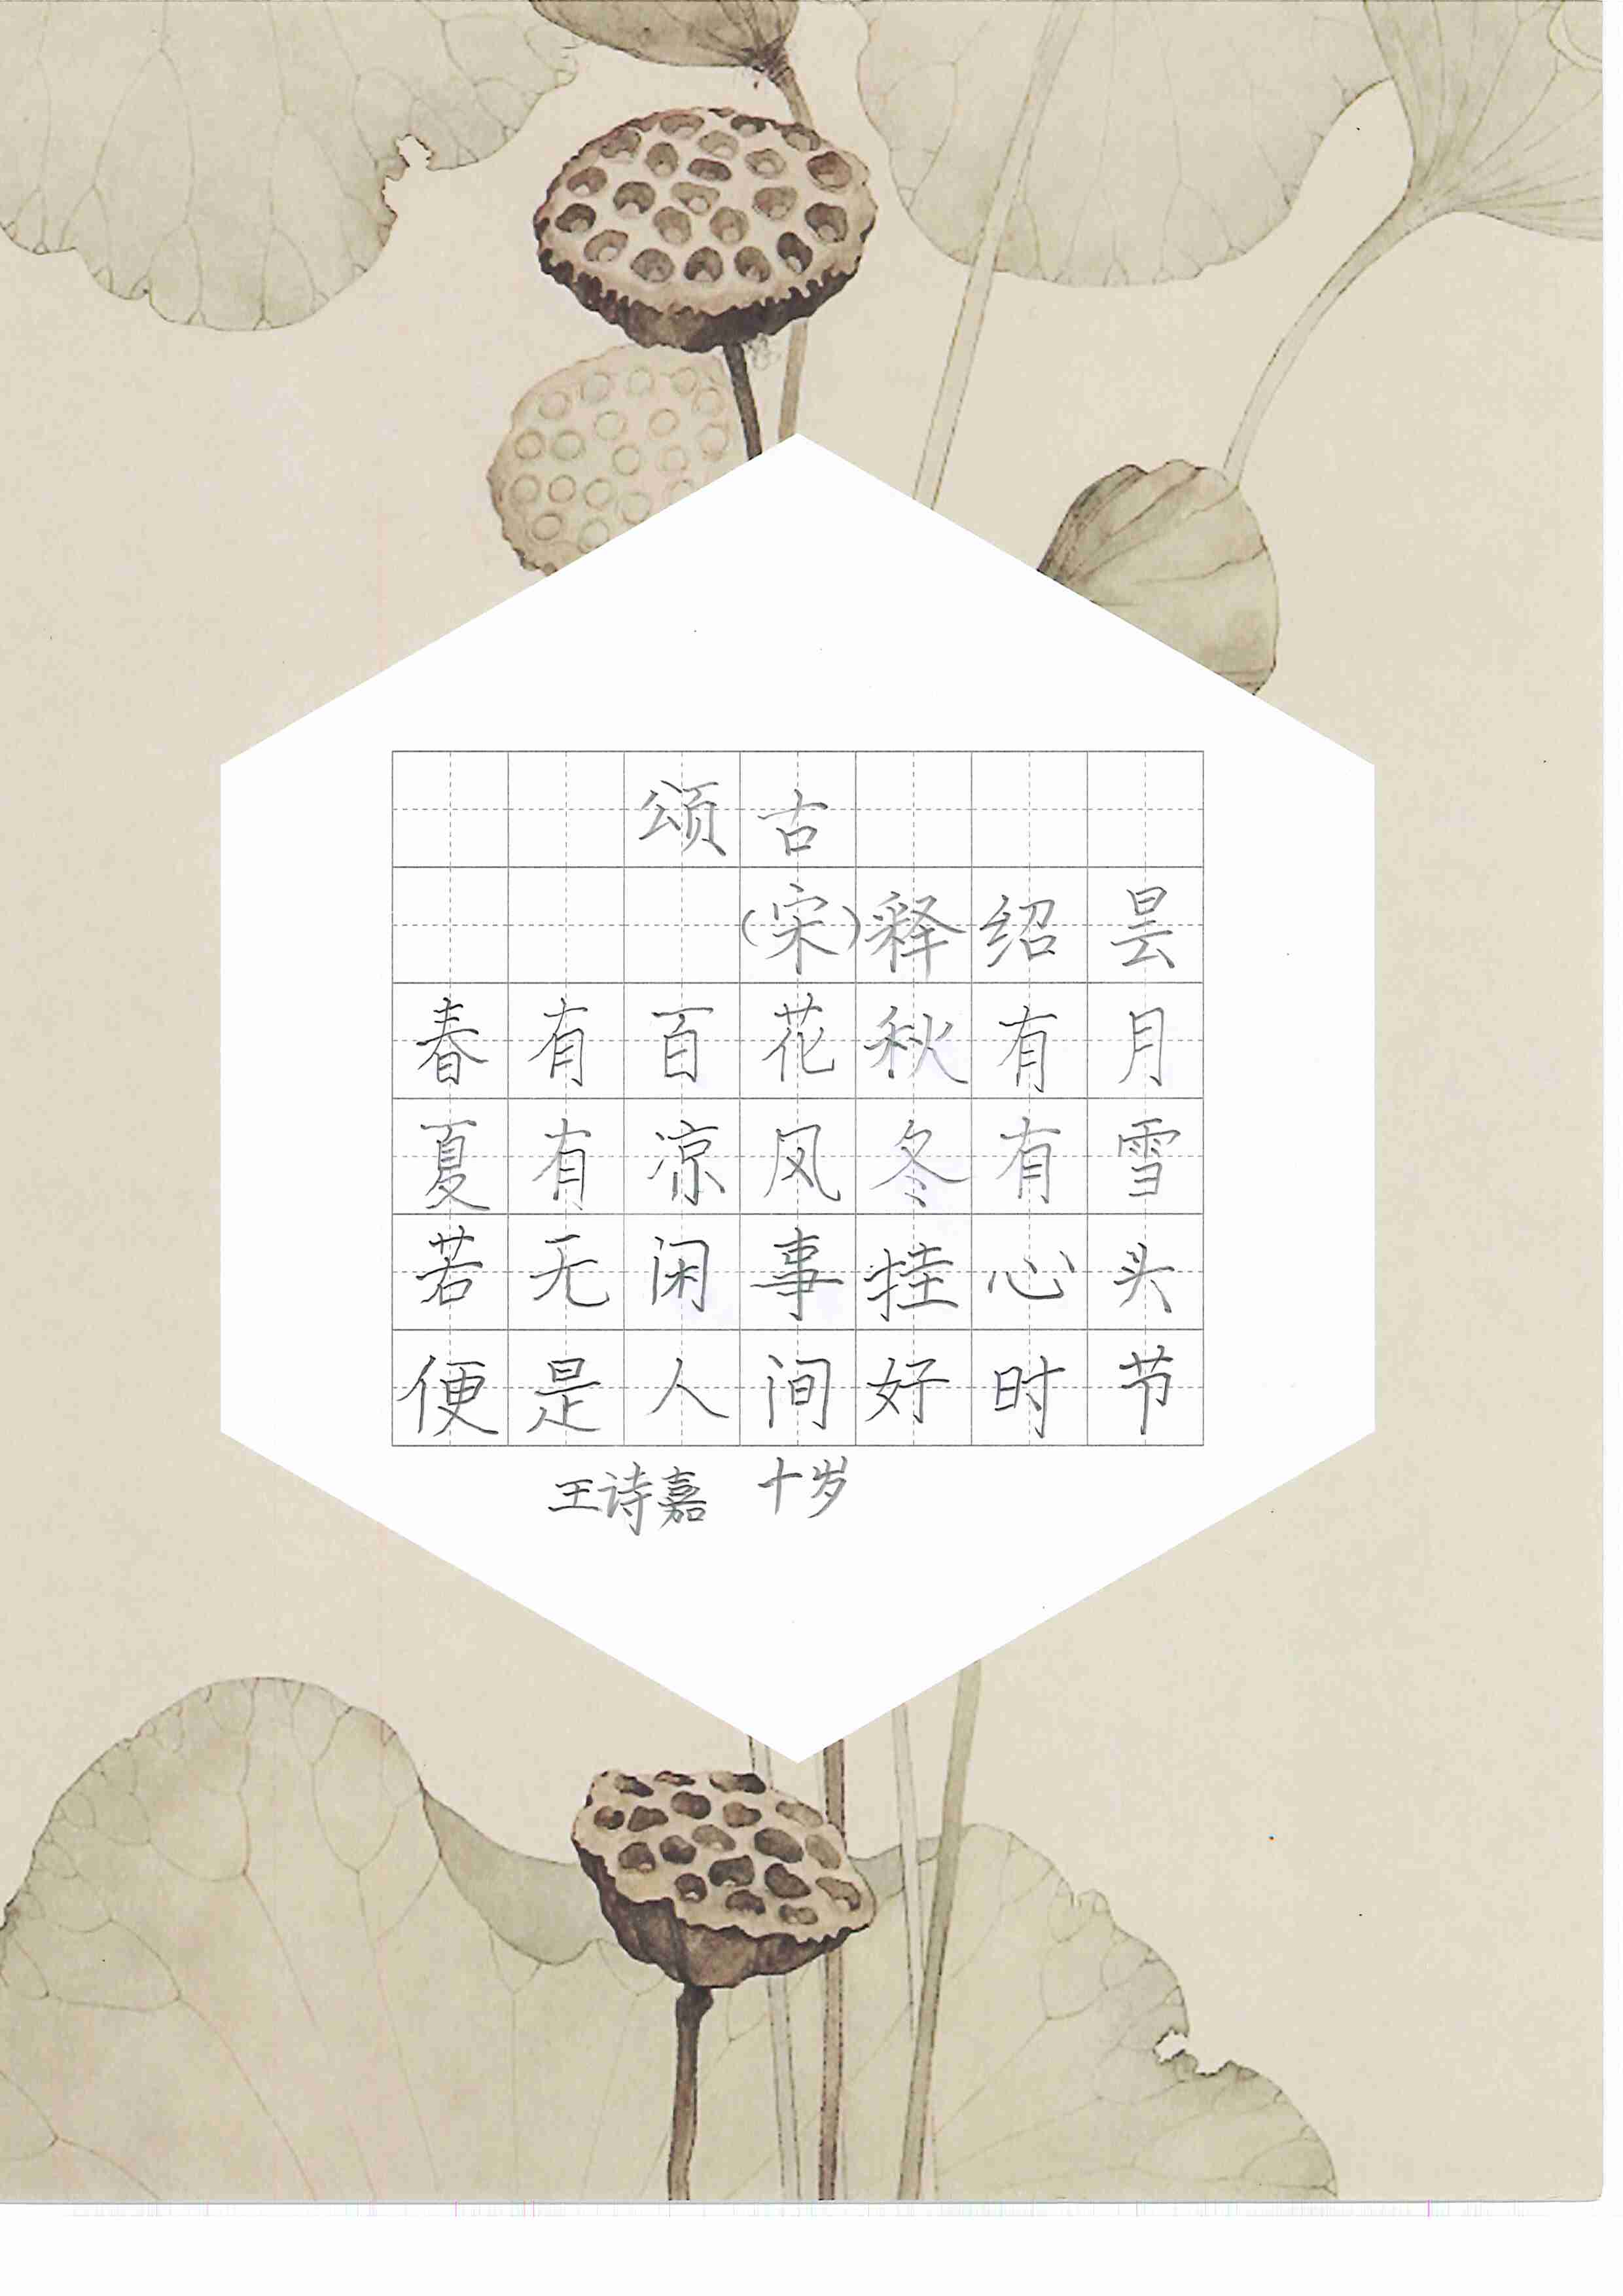 颂古
(宋)释绍昙
春有百花秋有月
夏有凉风冬有雪
若无闲事挂心头
便是人间好时节
王诗嘉 十岁